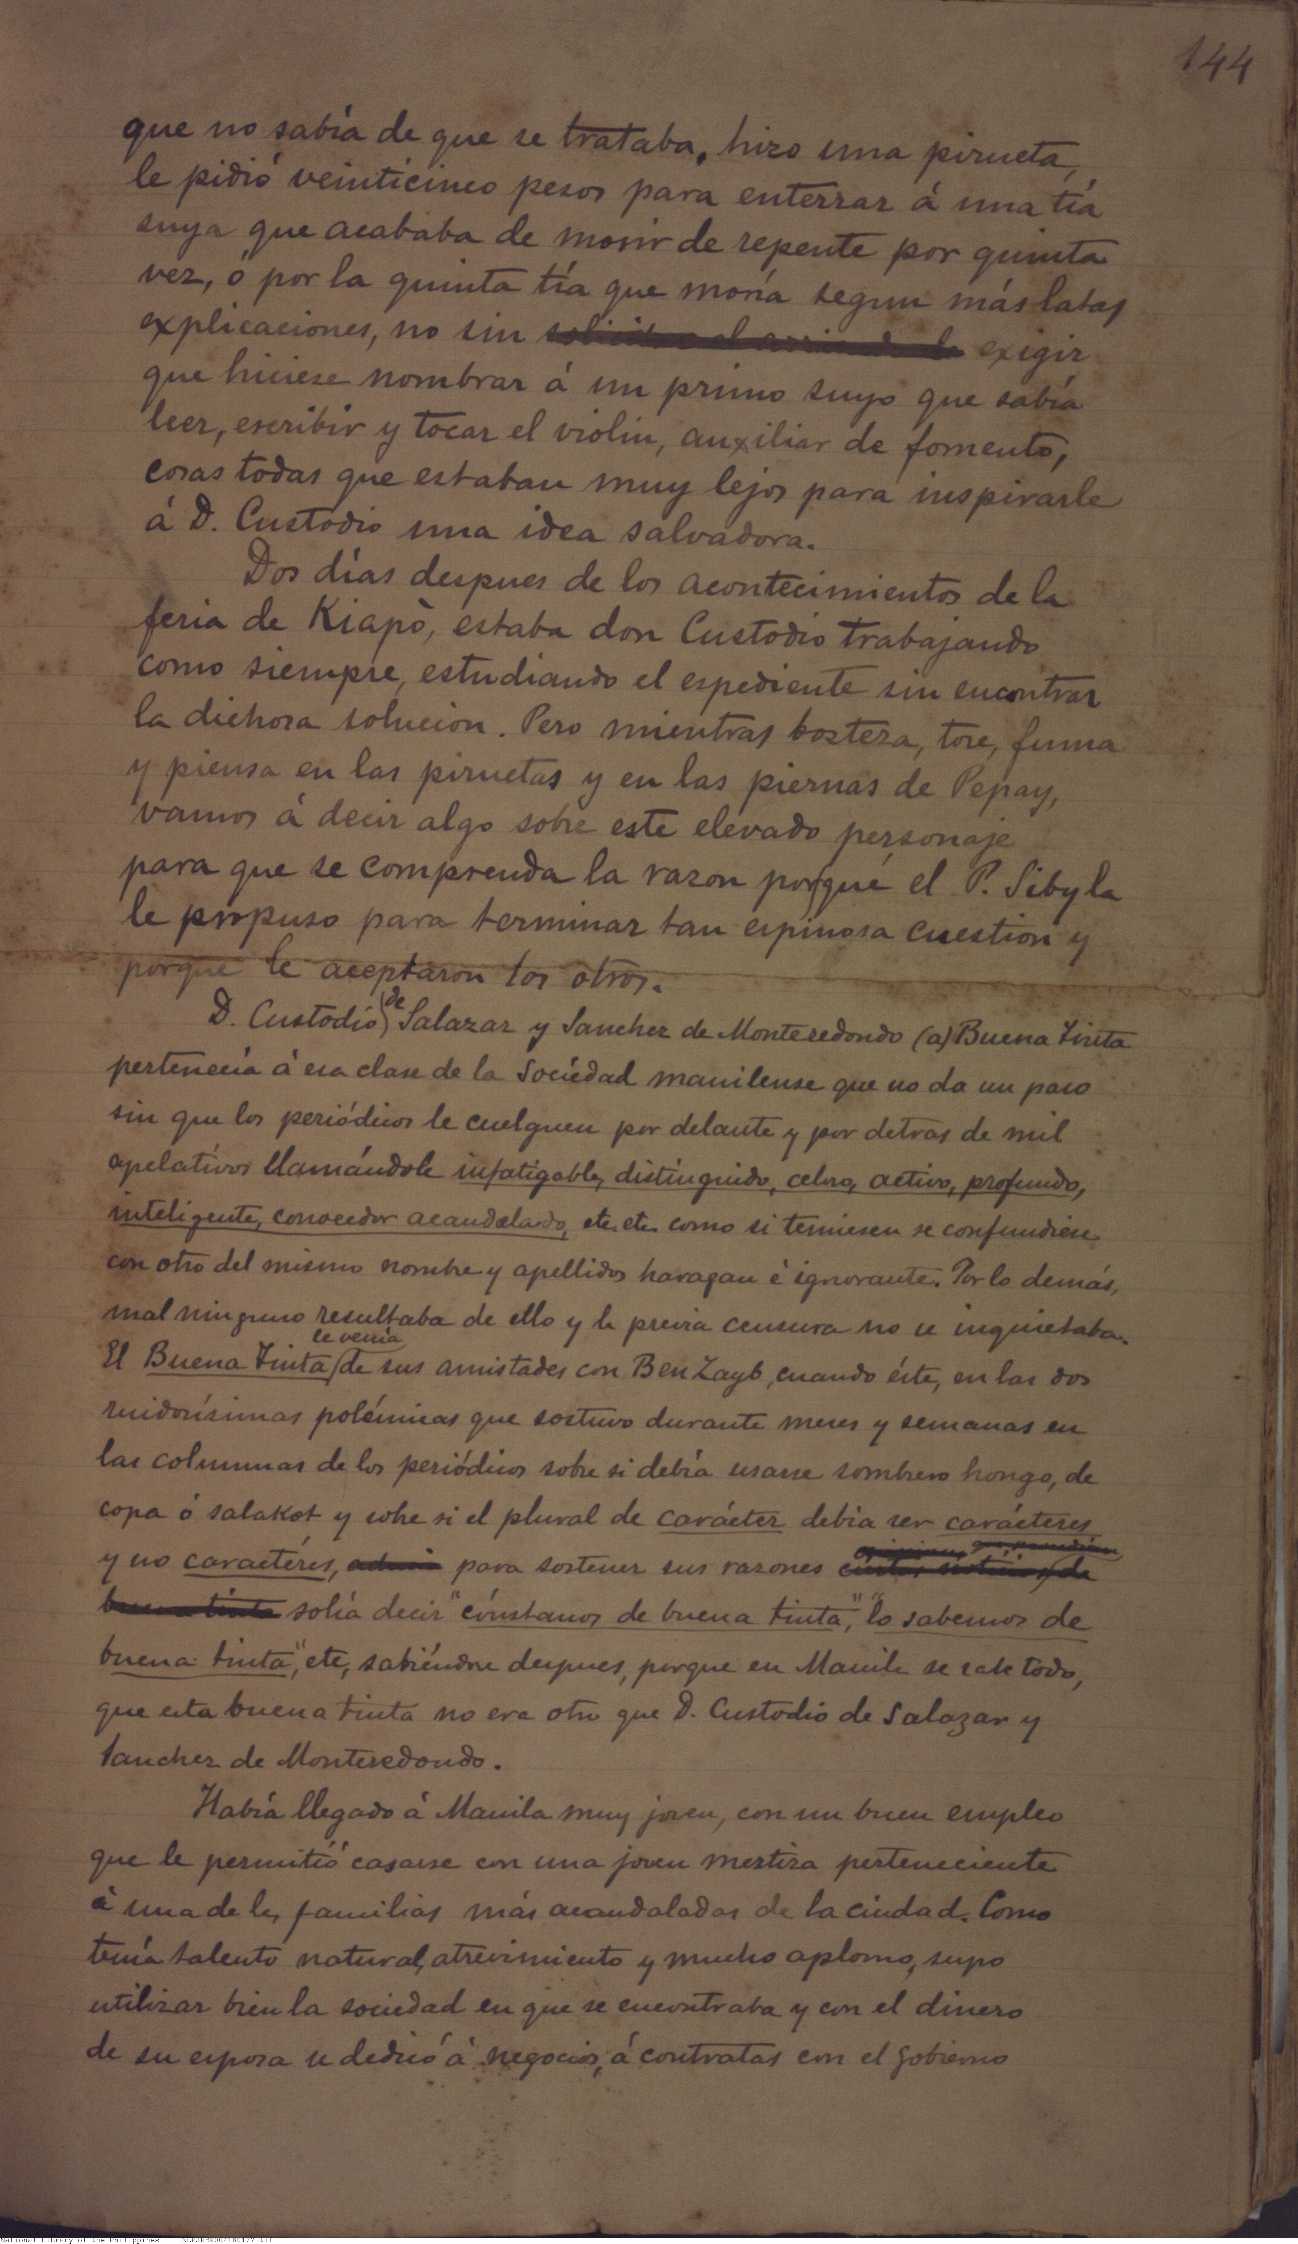 144
que no sabía de que se trataba, hizo una pirueta,
le pidió veinticinco pesos para enterrar á una tía
suya que acababa de morir de repente por quinta
vez, ó por la quinta tía que moría segun más latas
explicaciones, no sin exigir
que hiciese nombrar á un primo suyo que sabía
leer, escribir y tocar el violin, auxiliar de fomento,
cosas todas que estaban muy lejos para inspirarle
á D. Custodio una idea salvadora.
Dos días despues de los acontecimientos de la
feria de Kiapò, estaba don Custodio trabajando
como siempre, estudiando el espediente sin encontrar
la dichosa solucion. Pero mientras bosteza, tose, fuma
y piensa en las piruetas y en las piernas de Pepay,
vamos á decir algo sobre este elevado personaje
para que se comprenda la razon porqué el P. Sibyla
le propuso para terminar tan espinosa cuestion y
porque le aceptaron los otros.
D. Custodio de Salazar y Sanchez de Monteredondo (a) Buena Tinta
pertenecía á esa clase de la Sociedad manilense que no da un paso
sin que los periódicos le cuelguen por delante y por detras de mil
apelativos llamándole infatigable, distinguido, celoso, activo, profundo,
inteligente, conocedor acaudalado, etc. etc. como si temiesen se confundiese
con otro del mismo nombre y apellidos haragan é ignorante. Por lo demás,
mal ninguno resultaba de ello y la previa censura no se inquietaba.
El Buena Tinta le venía de sus amistades con Ben Zayb, cuando éste, en las dos
ruidosísimas polémicas que sostuvo durante meses y semanas en
las columnas de los periódicos sobre si debía usarse sombrero hongo, de
copa ó salakot y sobre si el plural de carácter debia ser carácteres
y no caractéres, para sostener sus razones
solía decir "cónstanos de buena tinta," "lo sabemos de
buena tinta," etc, sabiéndose despues, porque en Manila se sabe todo,
que esta buena tinta no era otro que D. Custodio de Salazar y
Sanchez de Monteredondo.
Había llegado á Manila muy joven, con un buen empleo
que le permitió casarse con una joven mestiza perteneciente
á una de las familias más acaudaladas de la ciudad. Como
tenía talento natural, atrevimiento y mucho aplomo, supo
utilizar bien la sociedad en que se encontraba y con el dinero
de su esposa se dedicó á negocios, á contratas con el gobierno
National Library of the Philippines